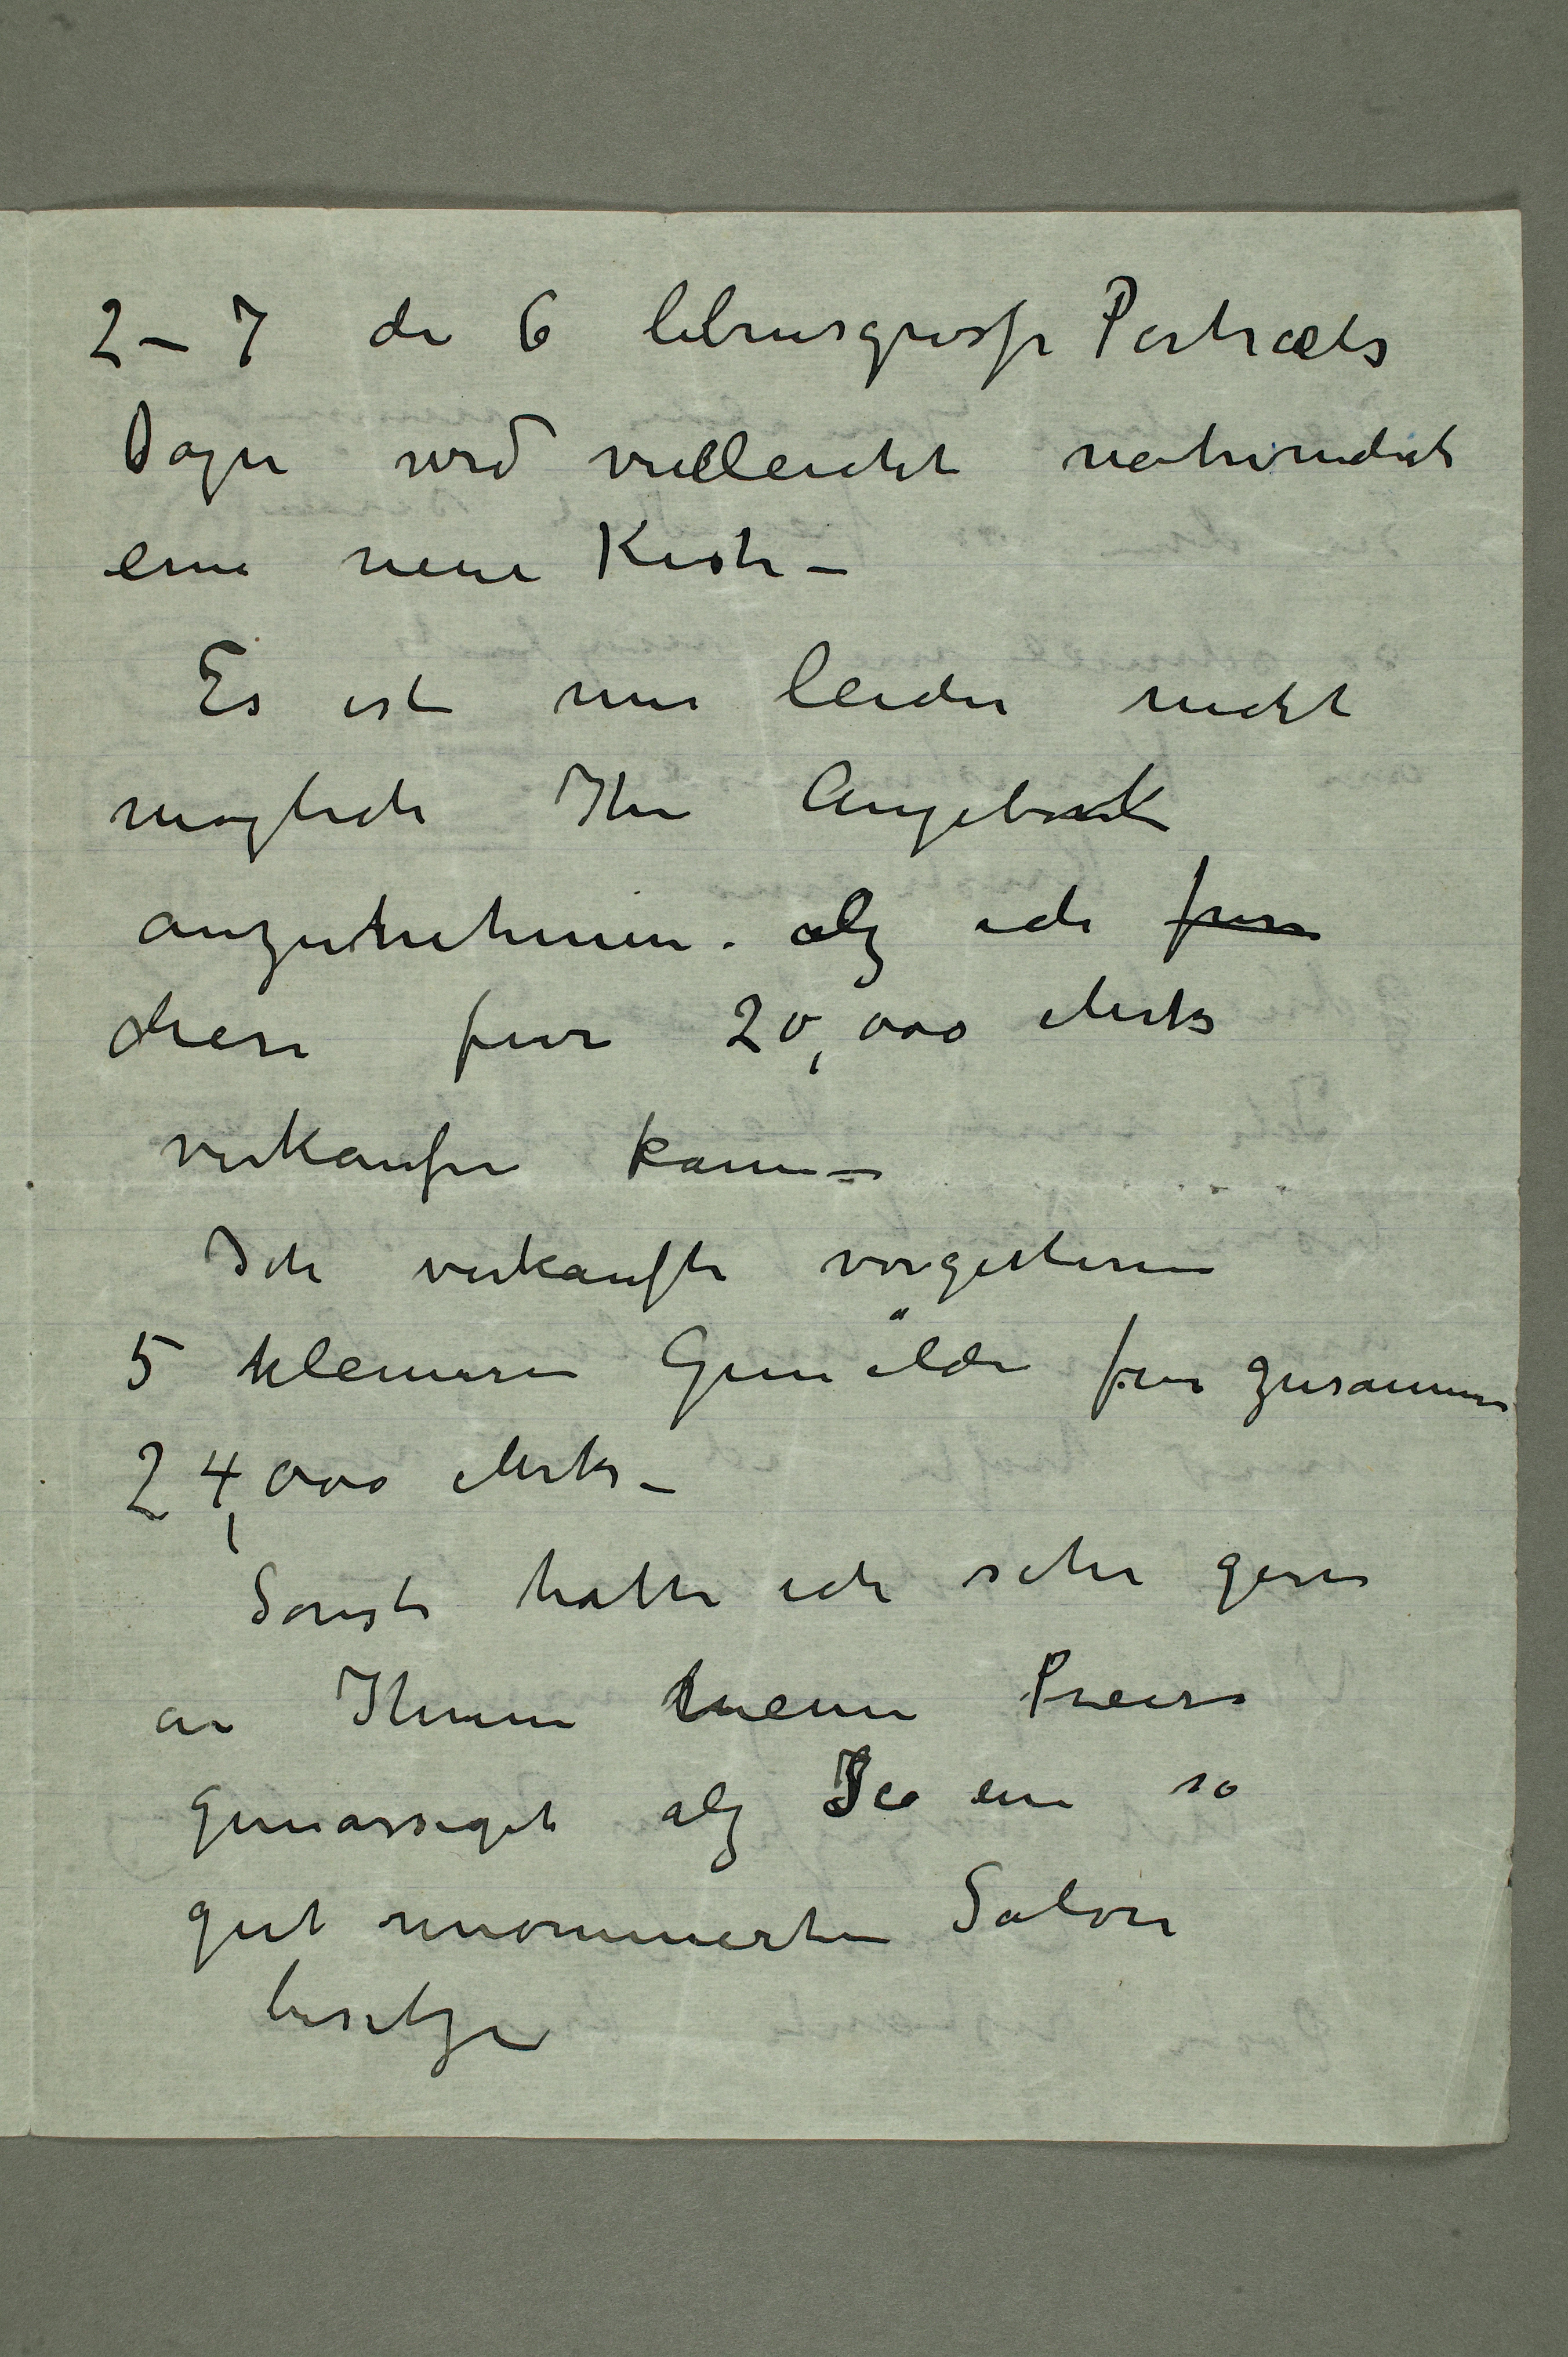 2–7 die 6 lebensgrosse Portræts
Dazu wird vielleicht nothwendich
eine neue Kiste –
Es ist mir leider nicht
moglich Ihr Angebot
anzunehmen. alz ich
diese fur 20,000 Mrks
verkaufen kann –
Ich verkaufte vorgestern
5 kleinere Gemälde fur zusammen
24,000 Mrks –
Sonst hatte ich sehr gern
an Ihnen meine Preise
gemässiget alz Sie ein so
gut renommierten Salon
besitzen